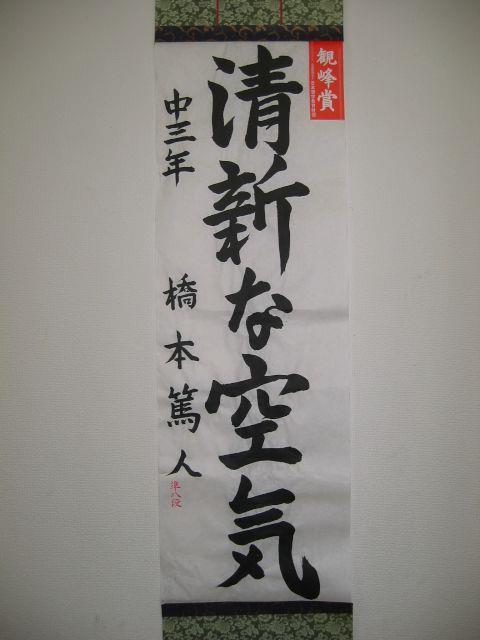 観峰賞
清新な空気
中三年
橋本篤人
準八段